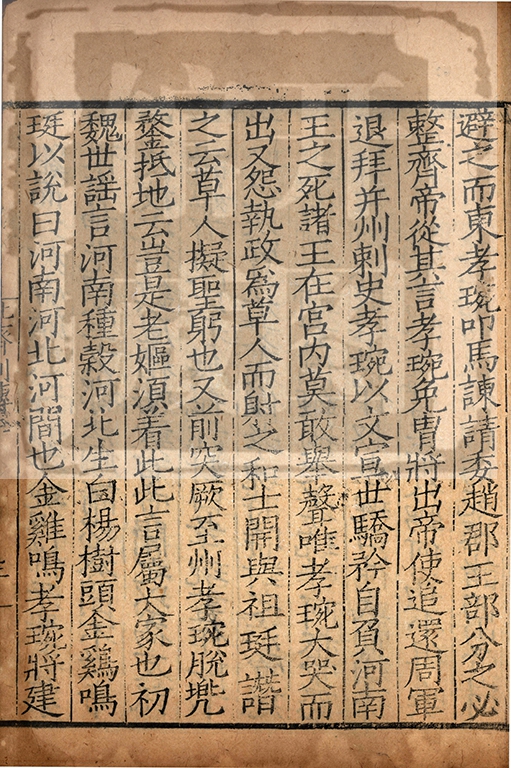 避之而東孝琬叩馬諫請委趙郡王部分之必
整齊帝從其言孝琬免胄將出帝使追還周軍
退拜并州刺史孝琬以文宣世驕矜自負河南
王之死諸王在宮内莫敢舉聲唯孝琬大哭而
出又怨執政爲草人而射之和士開與祖珽譖
之云草人擬聖躬也又前突厥至州孝琬脫兠
鍪抵地云豈是老嫗湏着此此言屬大家也初
魏世謡言河南種穀河北生白楊樹頭金鷄鳴
珽以說曰河南河北河間也金雞鳴孝琬將建